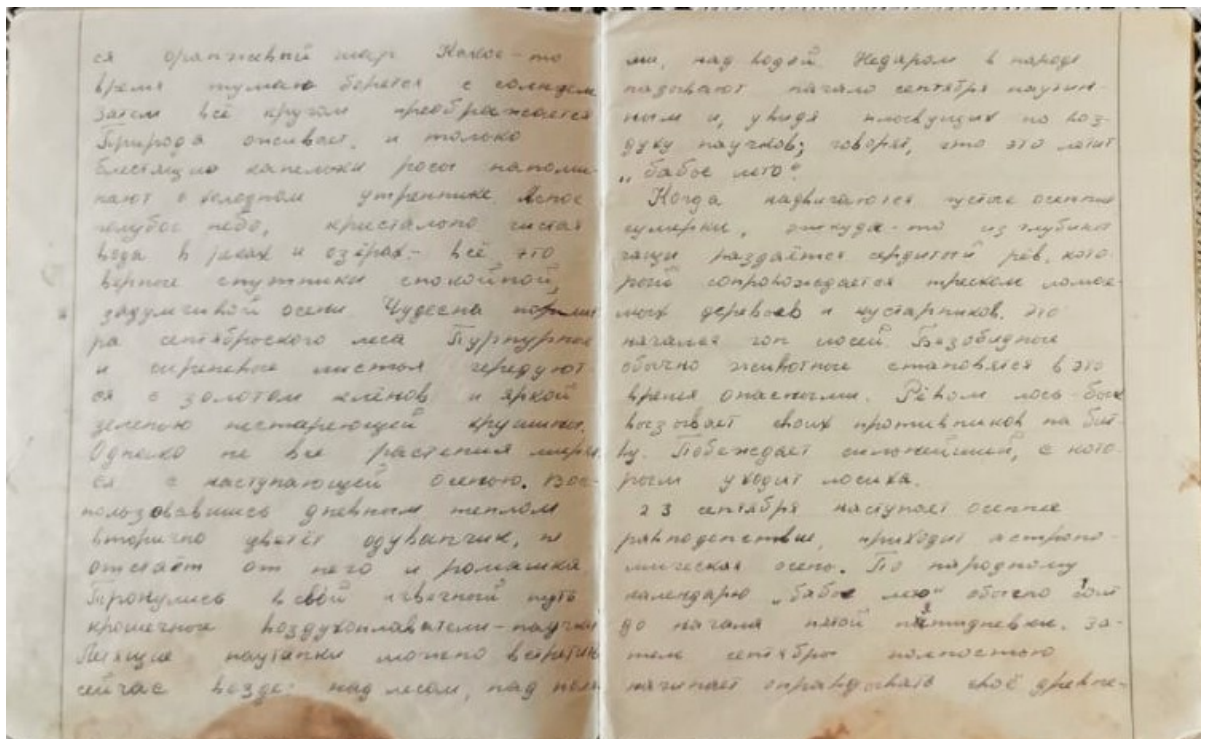 ся оранжевый шар Какое-то
время туман борется с солнцем
Затем всё кругом преображается
Природа оживает, и только
блестящие капельки росы напоми-
нают о холодном утреннике. Ясное
голубое небо, кристально чистая
вода в реках и озёрах - всё это
верные спутники спокойной,
задумчивой осени. Чудесна палит
ра сентябрьского леса Пурпурные
и сиреневые листья чередуют-
ся с золотом клёнов и яркой
зеленью нестареющей крушины.
Однако не все растения мирят
ся с наступающей осенью. Вос-
пользовавшись дневным теплом
вторично цветёт одуванчик, не
отстаёт от него и ромашка
Тронулись в свой извечный путь
крошечные воздухоплаватели-паучки
Летящие паутинки можно встретить
сейчас везде: над лесом, над поля
ми, над водой. Недаром в народе
называют начало сентября паутин-
ным и, увидя плывущих по воз-
духу паучков; говорят, что это летит
„бабье лето“
Когда надвигаются густые осенние
сумерки, откуда-то из глубины
чащи раздаётся сердитый рёв, кото-
рый сопровождается треском ломае-
мых деревьев и кустарников. Это
начался гон лосей. Безобидные
обычно животные становятся в это
время опасными. Рёвом лось-бык
вызывает своих противников на бит-
ву. Побеждает сильнейший, с кото-
рым уходит лосиха.
23 сентября наступает осеннее
равноденствие, приходит астроно-
мическая осень. По народному
календарю „бабье лето“ обычно
до начала пятой пятидневки. За-
тем сентябрь полностью
начинает оправдывать своё древне-